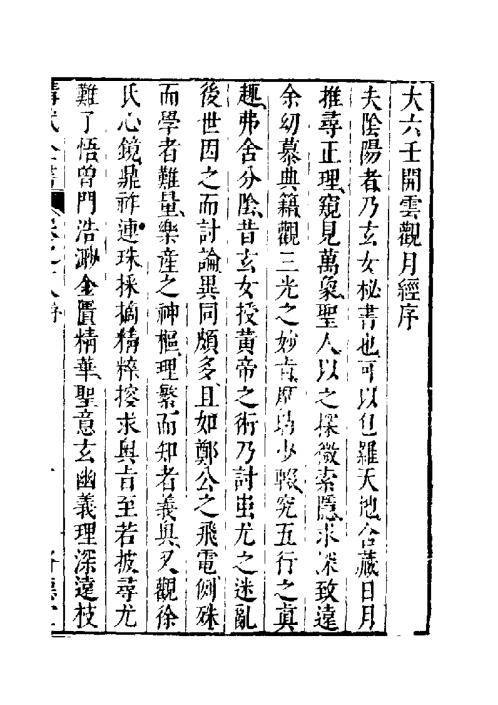 大六壬開雲觀月經序
夫陰陽者乃玄女秘書也可以包羅天地含藏日月
推尋正理窺見萬象聖人以之探微索隱求深致遠
余幼慕典籍觀三光之妙旨歷島少輟究五行之真
趣弗舍分陰昔玄女授黄帝之術乃討蚩尤之迷亂
後世因之而討論異同頗多且如鄭公之飛電側殊
而學者難量樂産之神樞理繁而知者義奥又觀徐
氏心鏡鼎祚連珠採摘精粹控求奥旨至若披尋尤
難了悟曾門浩渺金匱精華聖意玄幽義理深遠枝